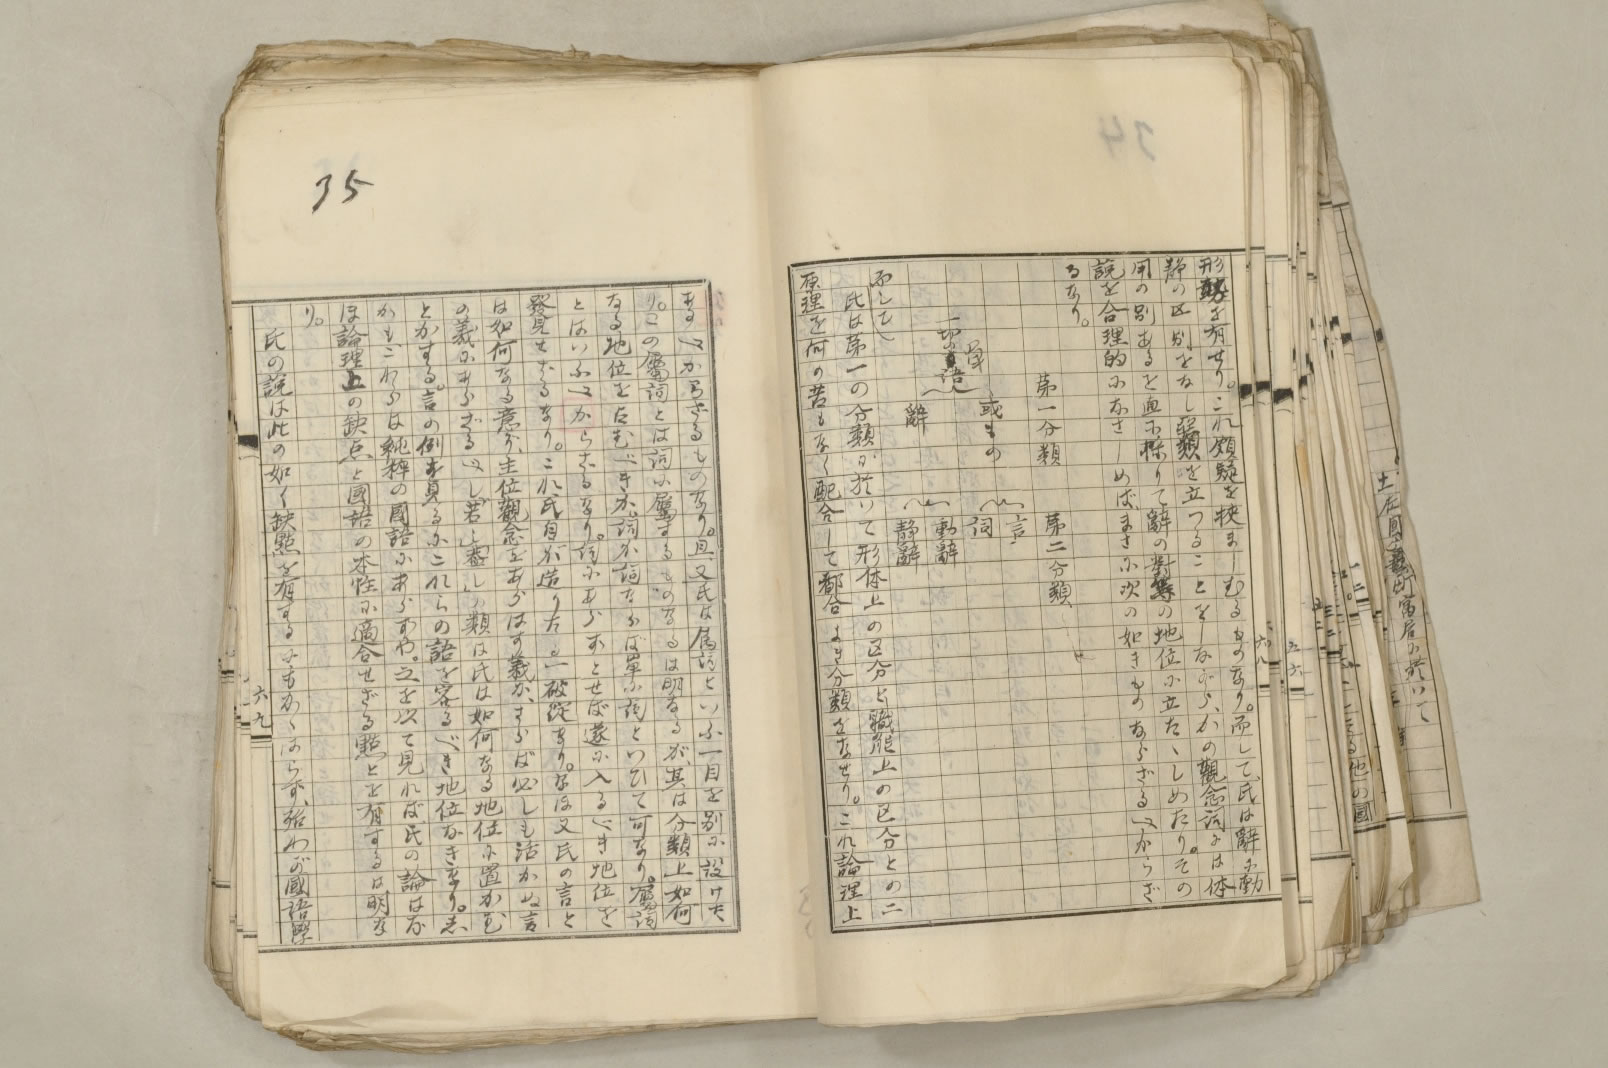 形勢を有せり。これ頗疑を挾ましむるものなり。而して、氏は辭に動
静の区別をなし、類を立つることをしながら、かの觀念詞には体
用の別あるを直に採りて辭の對等の地位に立たゝしめたり。その
説を合理的になさしめばまさに次の如きものならざるべからざ
るなり。
第一分類
第二分類
或もの
言
詞
一切の單語
辭
動辭
静辭
而して
氏は第一の分類に於いて形体上の区分と職能上の区分との二
原理を何の苦もなく配合して都合よき分類をなせり。これ論理上
六八
34
35
あるべからざるものなり。且又氏は属詞といふ一目を別に設けた
り。この属詞とは詞に屬するものなるは明なるが、其は分類上如何
なる地位を占むべきか。詞が詞ならば單に詞といひて可なり。屬詞
とはいふべからざるなり。詞にあらずとせば遂に入るべき地位を
發見せざるなり。これ氏自が造りたる一破綻なり。なほ又氏の言と
は如何なる意か、主位觀念をあらはす義か、さらば必しも活かぬ言
の義にあらざるべし。「若し」「蓋し」の類は氏は如何なる地位に置かむ
とかする。言の例を見るにこれらの語を容るべき地位なきなり。し
かもこれらは純粹の國語にあらずや。之を以て見れば氏の論はな
ほ論理上の缺点と國語の本性に適合せざる點とを有するは明な
り。
氏の説は此の如く缺點を有するにもかゝはらず、殆わが國語學
六九
土佐國
町寓居に於いて